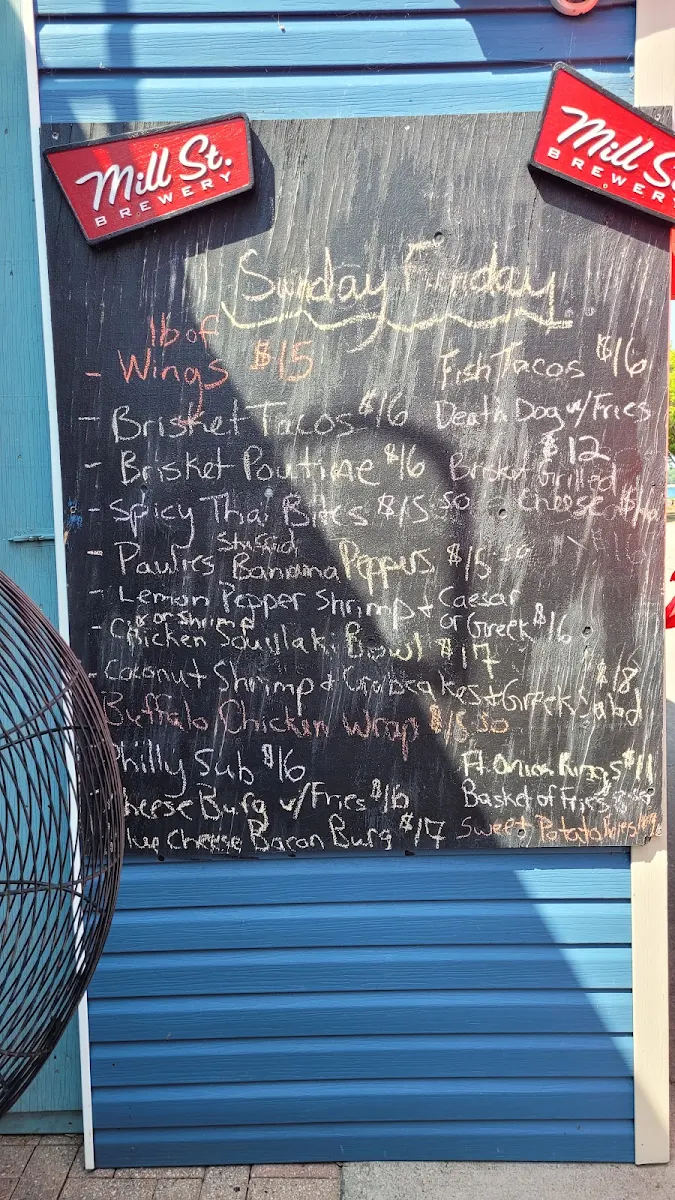 Mill St.
BREWERY
Mill S
BREWERY
Sunday Funday
1b of
- Wings $15
Fish Tacos $16
- Brisket Tacos $16
Death Dog w/Fries
$12
- Brisket Poutine $16
Brisket Grilled
Cheese
- Spicy Thai Bites $15.50
Stuffed
- Paulies Banana Peppers $15.50
- Lemon Pepper Shrimp + Caesar
or Greek $16
or shrimp
- Chicken Souvlaki Bowl $17
- Coconut Shrimp + Crabcakes + Greek Salad
$18
Buffalo Chicken Wrap $15.50
Philly Sub $16
Ft. Onion Rings $11
heese Burg w/Fries $16
Basket of Fries
lue Cheese Bacon Burg $17
Sweet Potato Fries